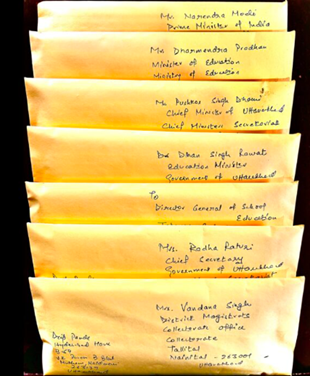 Mr. Narendra Modi
Prime Minister of India
Mr. Dharmendra Pradhan
Minister of Education
Ministry of Education
Mr. Pushkar Singh Dhami
Chief Minister of Uttarakhand
Chief Minister Secretariat
Dr Dhan Singh Rawat
Education Minister
Government of Uttarakhand
To
Director General of School
Education
Mrs. Radha Raturi
Chief Secretary
Government of Uttarakhand
Mrs. Vandana Singh
District Magistrate
Collectorate Office
Collectorate
Tallital
Nainital - 263001
Uttarakhand